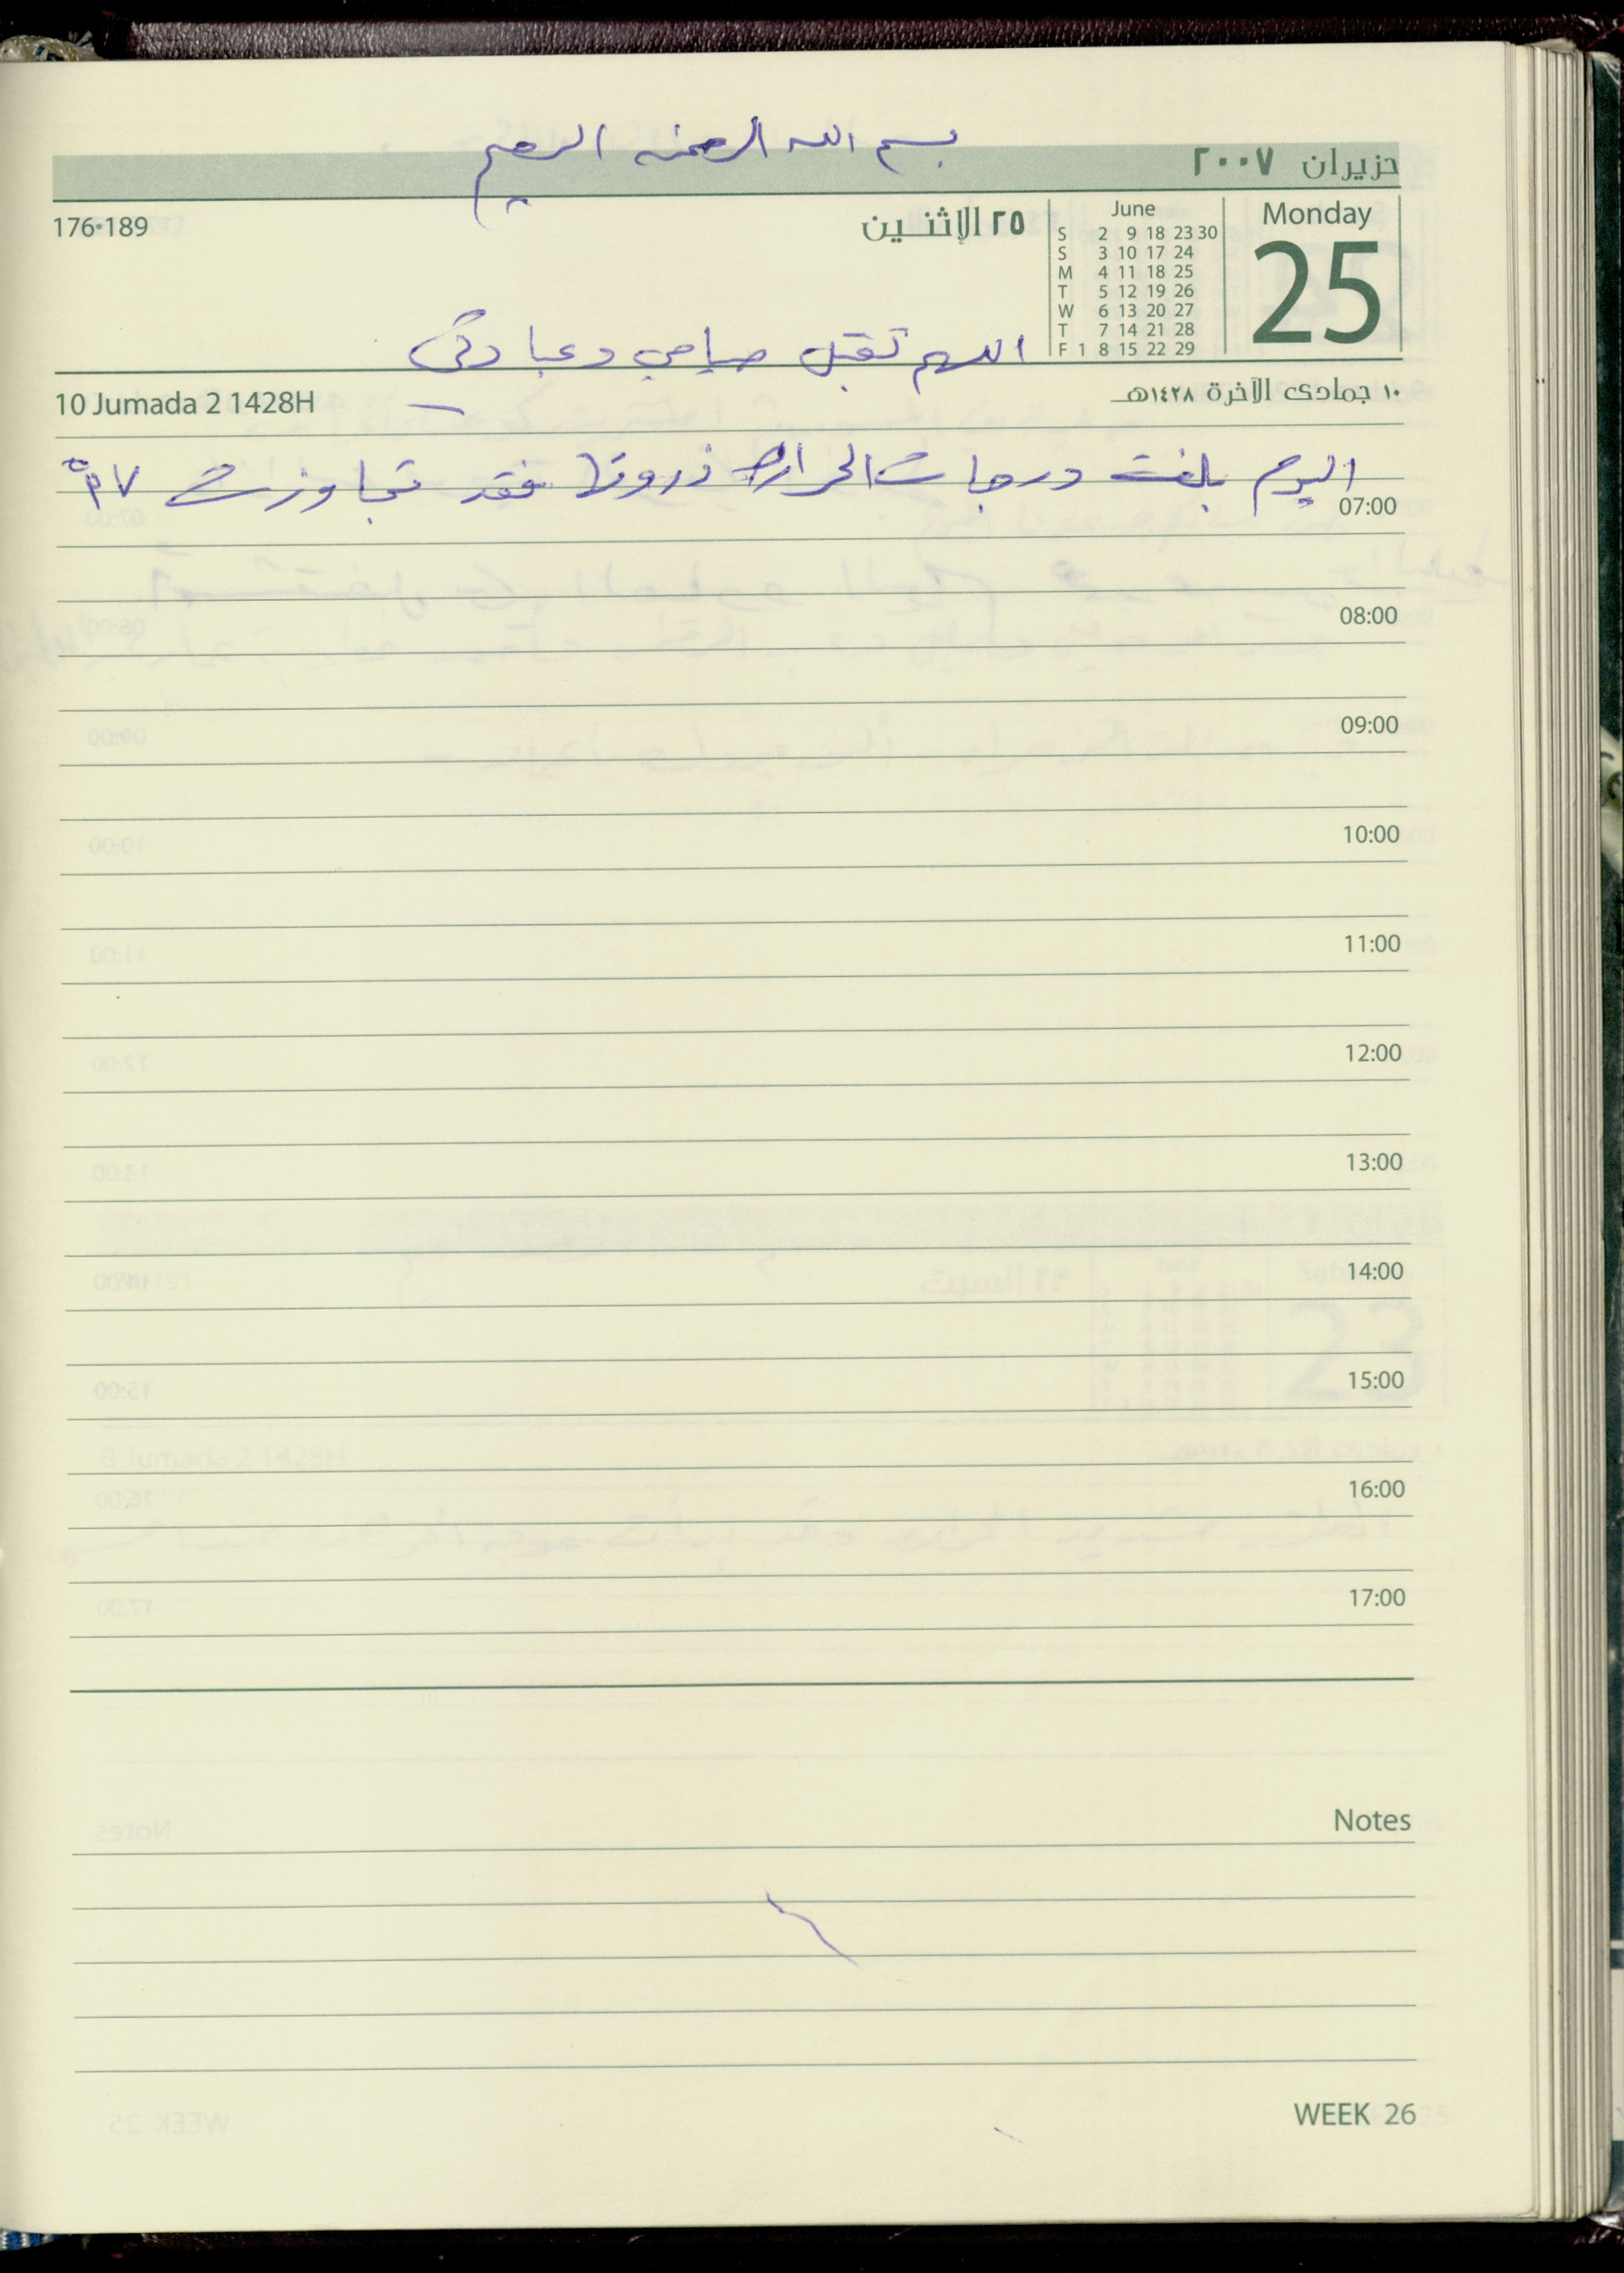 بسم الله الرحمن الرحيم
حزيران ٢٠٠٧
Monday
25
June
S 2 9 18 23 30
S 3 10 17 24
M 4 11 18 25
T 5 12 19 26
W 6 13 20 27
T 7 14 21 28
F 1 8 15 22 29
٢٥ الإثنين
176•189
اللهم تقبل صيامي وعبادتي
١٠ جمادى الآخرة ١٤٢٨هـ
10 Jumada 2 1428H
اليوم بلغت درجات الحرارة ذروتها فقد تجاوزت
07:00
08:00
09:00
10:00
11:00
12:00
13:00
14:00
15:00
16:00
17:00
Notes
WEEK 26